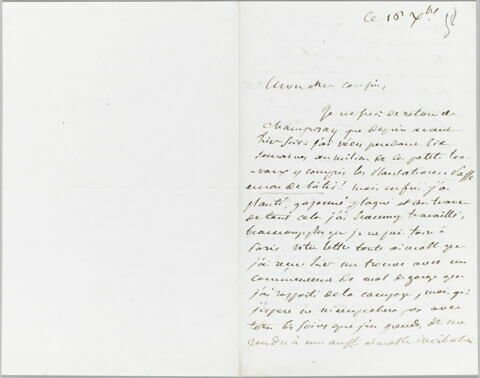 Ce 10 Xbre
Mon cher cousin,
Je ne suis de retour de
Champrosay que depuis avant
hier soir: j'ai vécu pendant six
semaines au milieu de ces petits tra-
vaux y compris les plantations
de bâtir! mais enfin j'ai
planté, gazonné, élagué et au travers
de tout cela j'ai beaucoup travaillé,
beaucoup plus que je ne puis faire à
Paris. Votre lettre toute aimable que
j'ai reçue hier me trouve avec un
commencement de mal de gorge que
j'ai rapporté de la campagne, mais qui
j'espère ne m'empêchera pas avec
tous les soins que j'en prends, de me
rendre à une aussi aimable invitation